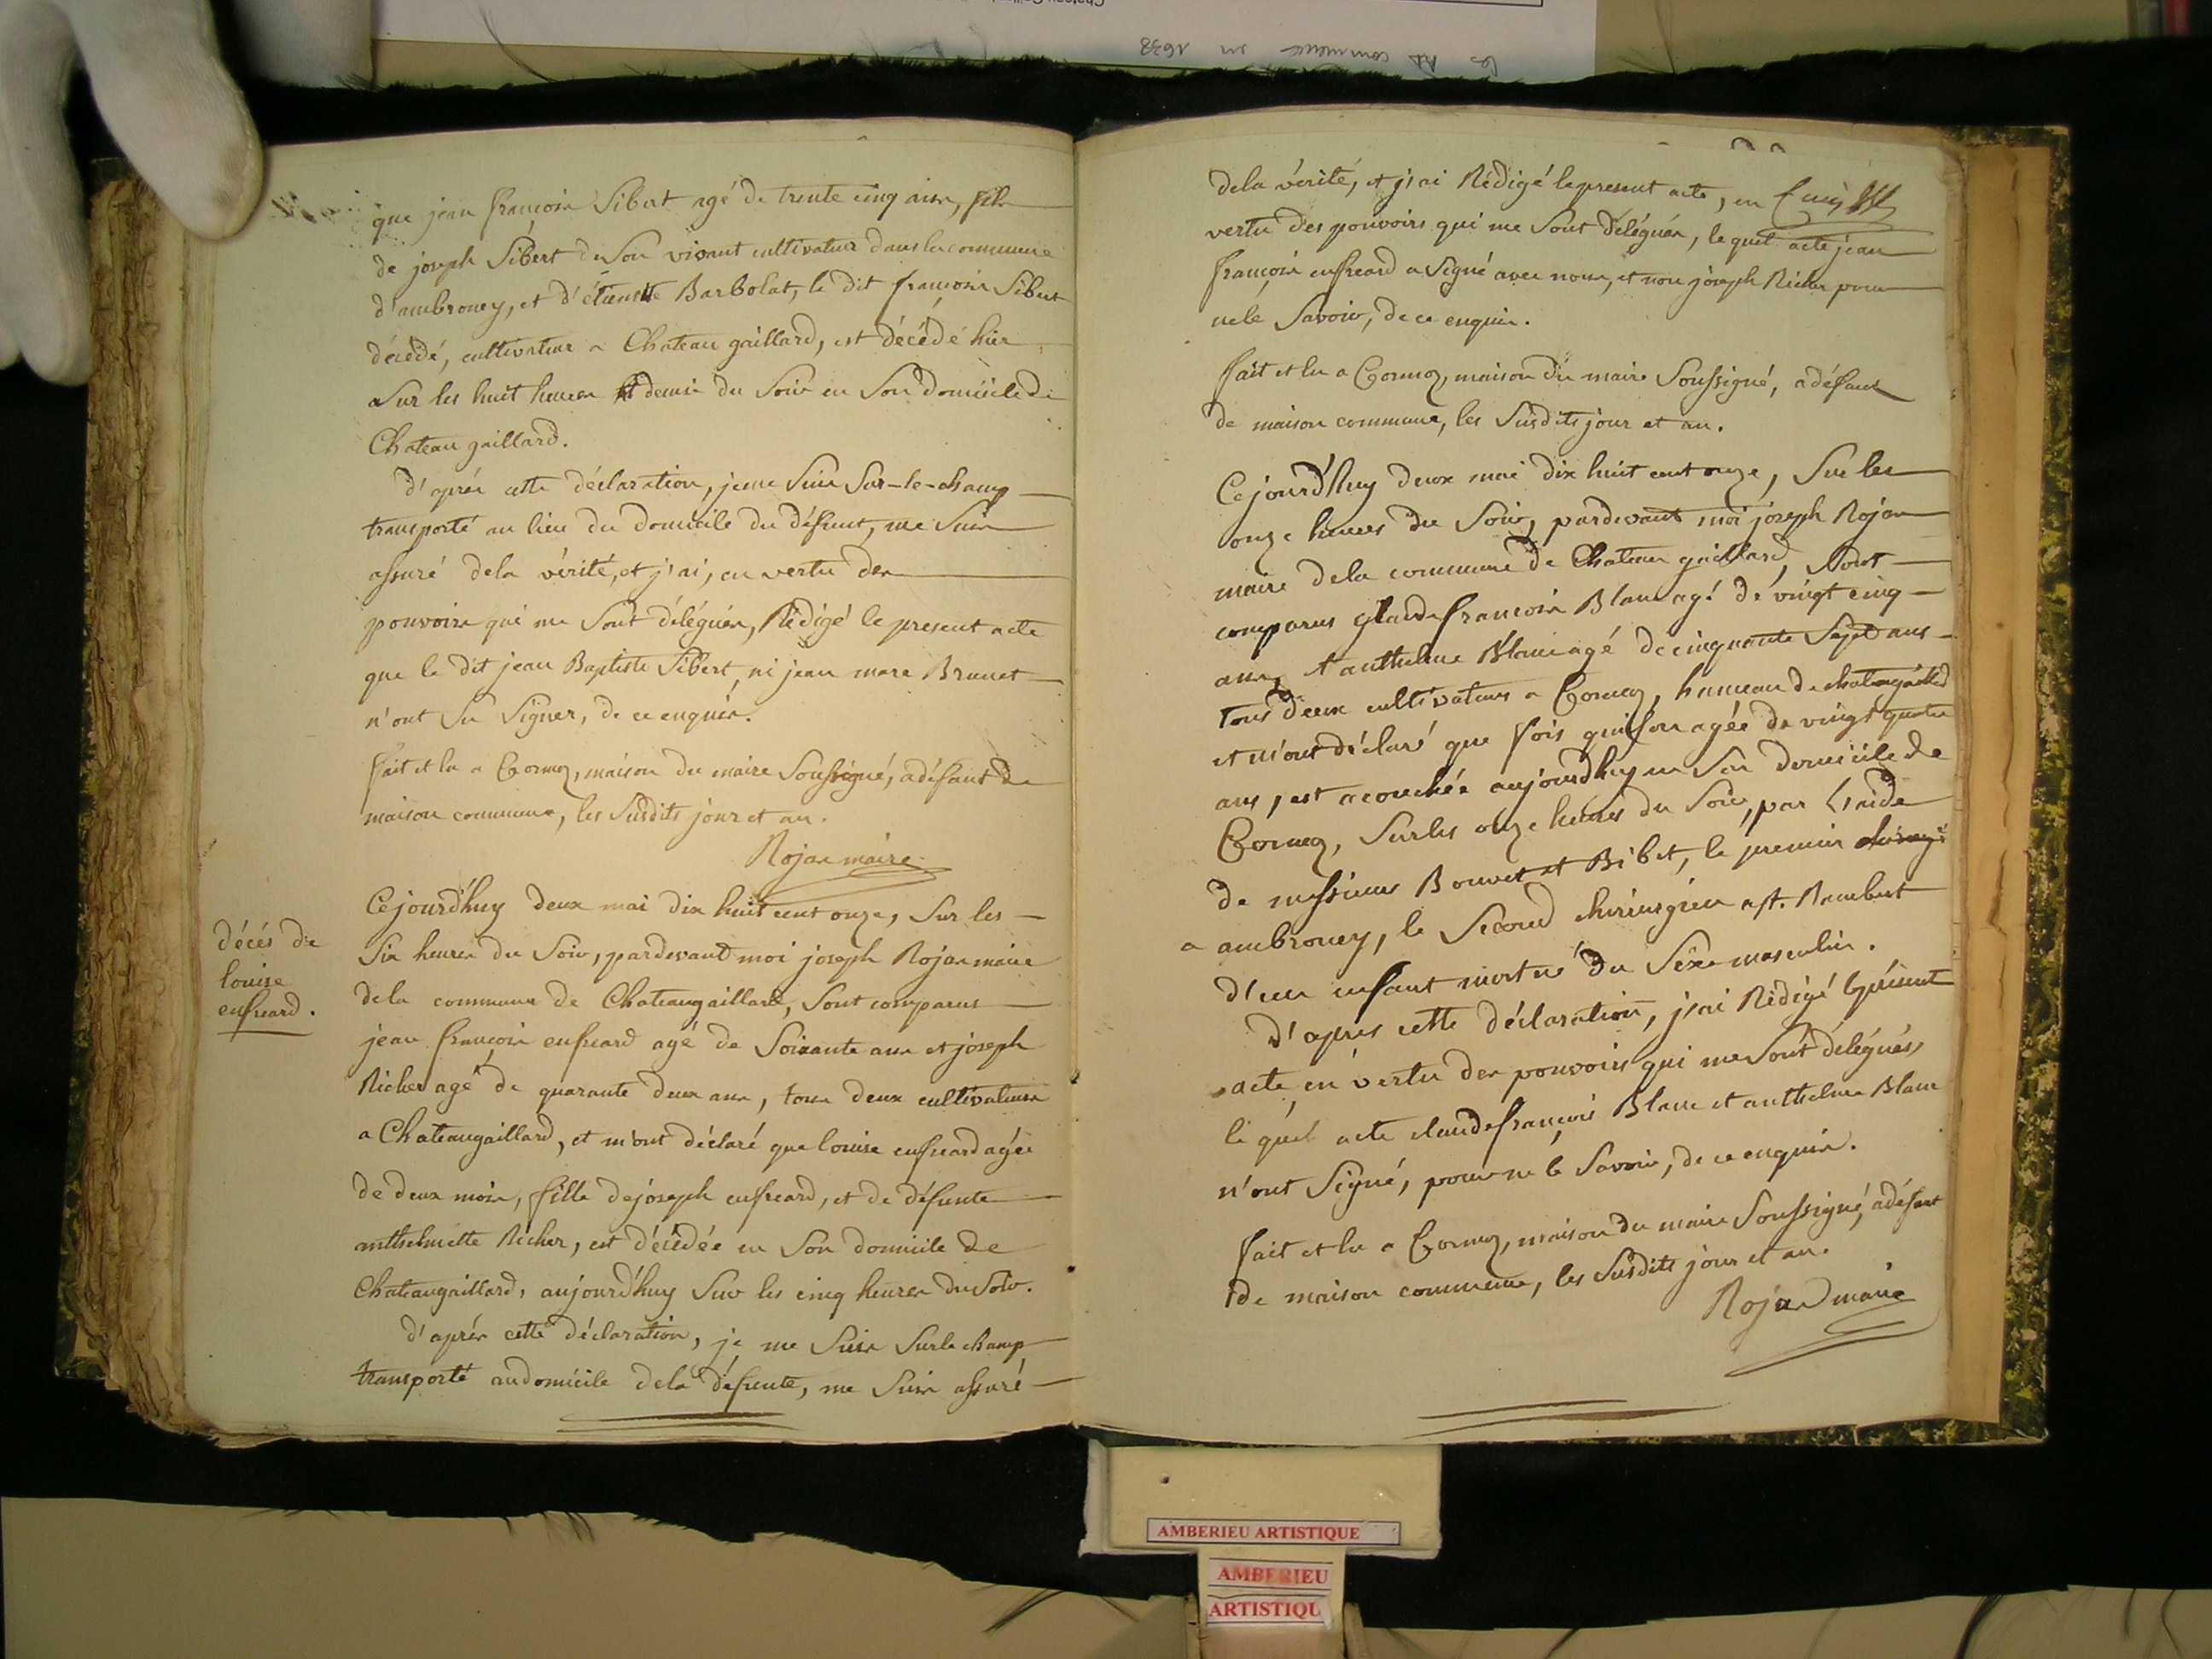 que jean françois Sibert agé de trente cinq ans, fils
de joseph Sibert de Son vivant cultivateur dans la commune
d'ambroney, et d'étiennette Barbolat, le dit françois Sibert
décédé, cultivateur a Chateau gaillard, est décédé hier
Sur les huit heures et demie du Soir en Son domicile de
Chateau gaillard.
d'aprés cette déclaration, je me Suis Sur-le-champ
transporté au lieu du domicile du défunt, me Suis
assuré dela vérité, et j'ai, en vertu des
pouvoirs qui me Sont délégués, Rédigé le present acte
que le dit jean Baptiste Sibert, ni jean marc Brunet
n'ont Su Signer, de ce enquis.
fait et lu a Cormoz, maison du maire Soussigné, a défaut de
maison commune, les Susdits jour et an.
Rojan maire
décés de
louise
enfreard.
Cejourd'huy deux mai dix huit cent onze, Sur les
Six heures du Soir, pardevant moi joseph Rojan maire
dela commune de Chateaugaillard, Sont comparus
jean françois enfreard agé de Soixante ans et joseph
Richer agé de quarante deux ans, tous deux cultivateurs
a Chateaugaillard, et m'ont déclaré que louise enfreard agée
de deux mois, fille de joseph enfreard, et de défunte
anthelmette Richer, est décédée en Son domicile de
Chateaugaillard, aujourd'huy Sur les cinq heures du Soir.
d'aprés cette déclaration, je me Suis Surle champ
transporté audomicile dela défunte, me Suis assuré
dela vérité, et j'ai Rédigé le present acte, en
vertu des pouvoirs qui me Sont délégués, le quel acte jean
françois enfreard a Signé avec nous, et non joseph Richer pour
ne le Savoir, de ce enquis.
fait et lu a Cormoz, maison du maire Soussigné, a défaut
de maison commune, les Susdits jour et an.
Cejourd'huy deux mai dix huit cent onze, Sur les
onze heures du Soir, pardevant moi joseph Rojan
maire dela commune de Chateau gaillard, Sont
comparus glaude françois Blanc agé de vingt cinq
ans, et anthelme Blanc agé de cinquante Sept ans
tous deux cultivateurs a Cormoz, hameau de chateaugaillard
et m'ont déclaré que fois agée de vingt quatre
ans, est acouchée aujourdhuy en Son domicile de
Cormoz, Sur les onze heures du Soir, par l'aide
de messieurs Bouvet et Bibet, le premier
a ambroney, le Second chirurgien a St. Rambert
d'un enfant mort né du Sexe masculin.
d'apres cette déclaration, j'ai Rédigé le présent
acte, en vertu des pouvoirs qui me Sont délégués,
le quel acte claude françois Blanc et anthelme Blanc
n'ont Signé, pour ne le Savoir, de ce enquis.
fait et lu a Cormoz, maison du maire Soussigné, a défaut
de maison commune, les Susdits jour et an.
Rojan maire
AMBERIEU ARTISTIQUE
AMBERIEU
ARTISTIQU